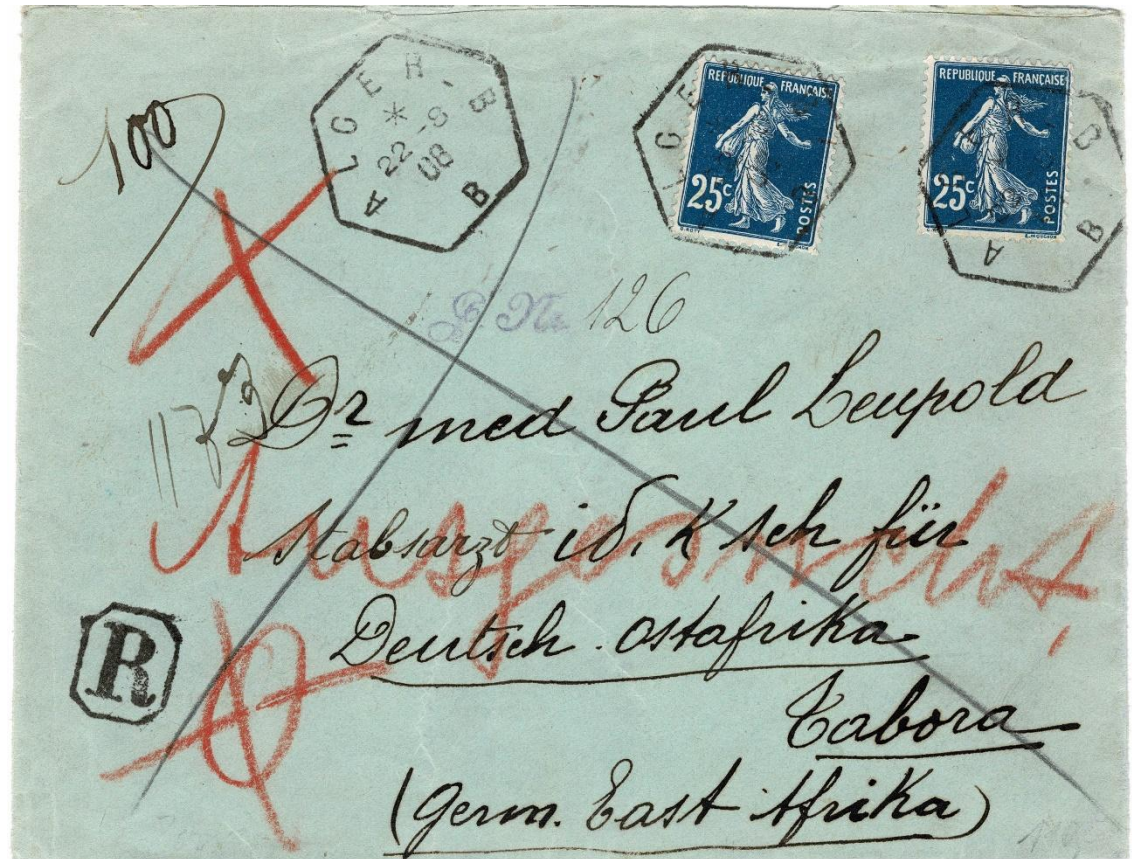 100
ALGER-B B
* 22-8 08
REPUBLIQUE FRANÇAISE
25c POSTES
REPUBLIQUE FRANÇAISE
25c POSTES
126
Dr med Paul Leupold
Stabsarzt id. K Sch für
Deutsch-Ostafrika
Tabora
(Germ. East Afrika)
R